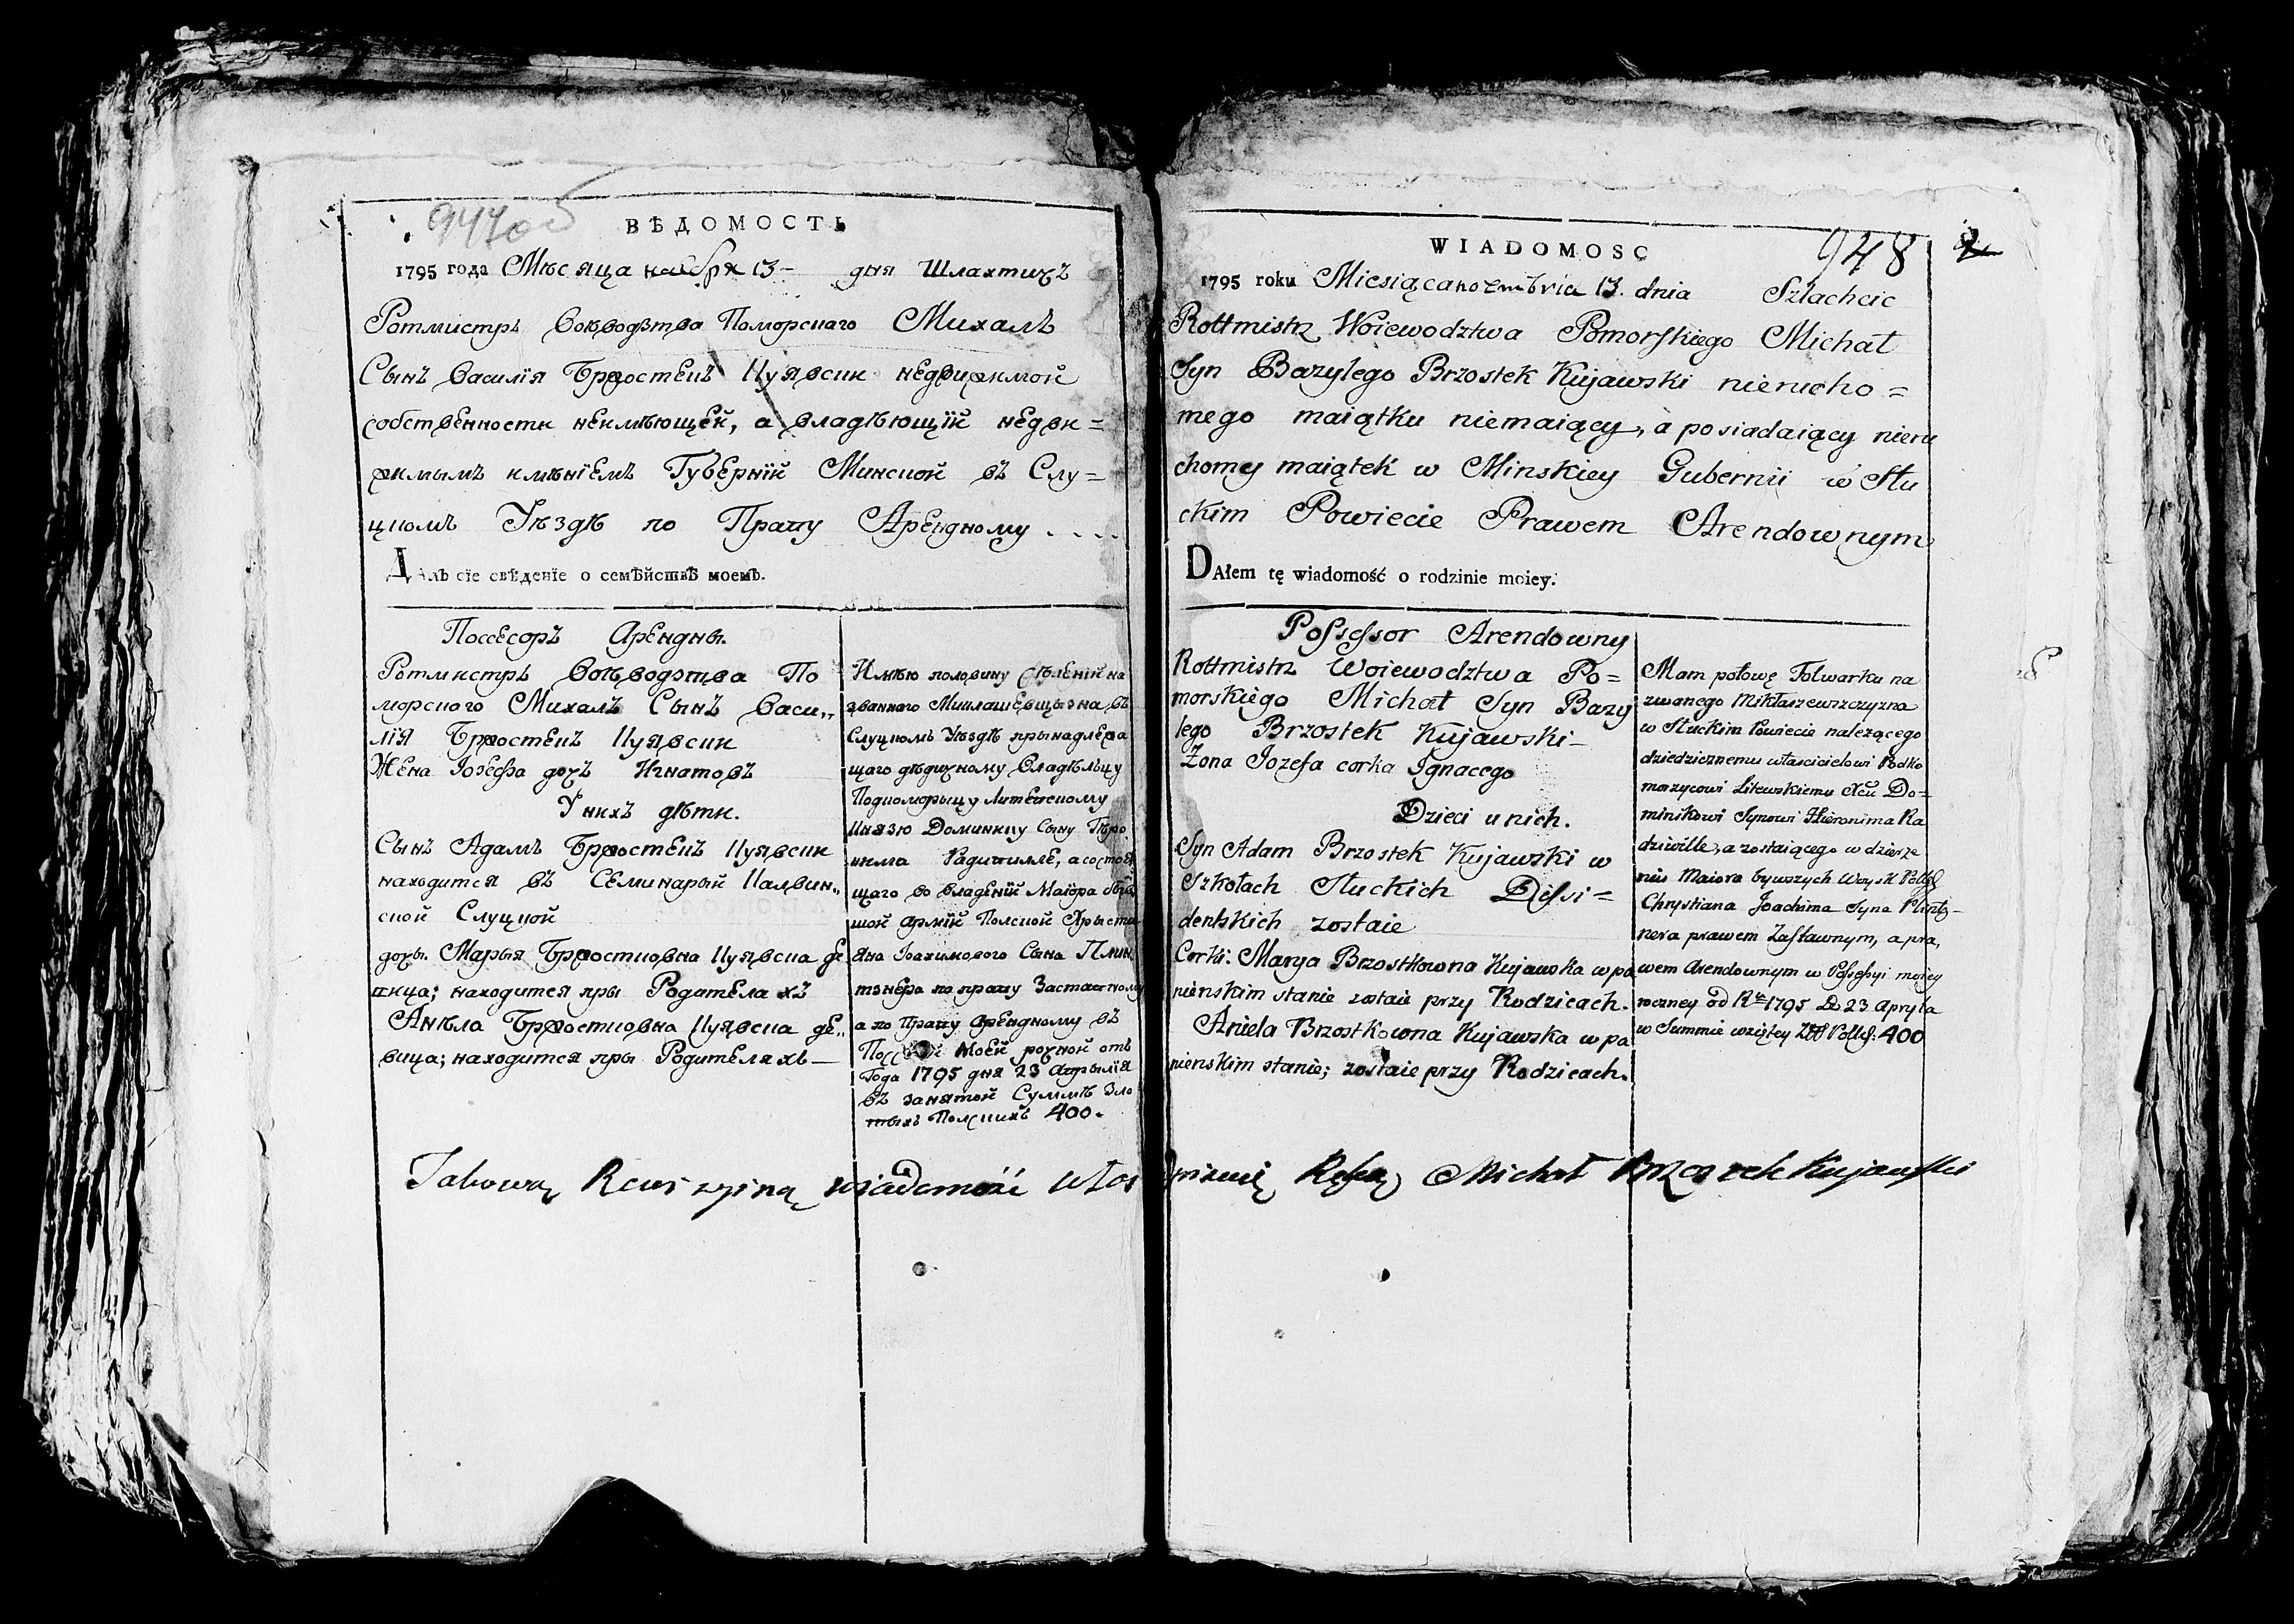 947об
ВѢДОМОСТЬ
1795 года Мѣсяца ноября 13 – дня Шлахтичъ
Ротмистръ Воѣводзтва Поморскаго Михалъ
Сынъ Василія Бржостекъ Куявски недвижимой
собственности неимѣющей, а владѣющій недви=
жимымъ имѣніемъ Губерніи Минской въ Слу=
цкомъ Уѣздѣ по Праву Арендному . . . .
Далъ сіе свѣденіе о семѣйствѣ моемъ.
Поссесоръ Арендны.
Ротмистръ Воѣводзтва По
морского Михалъ Сынъ Васи„
лія Бржостекъ Куявски
Жена Іозефа дочъ Игнатовъ
У нихъ дѣти.
Сынъ Адамъ Бржостекъ Куявски
находится въ Семинарыи Калвин„
ской Слуцкой
дочь. Марья Бржостковна Куявска де
вица; находится при Родителахъ
Анѣла Бржостковна Куявска де„
вица; находится при Родителахъ —
Имѣю половину Сѣленіи на
званного Миклашевщызна въ
Слуцкомъ Уѣздѣ принадлежа
щаго дѣдичному Владѣльцу
Подкоморыцу Литевскому
Князю Доминику Сыну Гѣро
нима Радзивилле, а состоя
щаго во Владеніи Маіора быв
шой Арміи Полской Хрысти
яна Іоахимового Сына Плин
тзнера по праву Заставному
а по Праву Арендному въ
Моей рочной отъ
Года 1795 дня 23 Апрыля
въ занятой Суммѣ Зло
тыхъ Полскихъ 400.
WIADOMOSC
948
1795 roku Miesiąca nozembria 13. dnia Szlachcic
Rottmistrz Woiewodztwa Pomorskiego Michał
Syn Bazylego Brzostek Kujawski nierucho=
mego maiątku niemaiący, a posiadaiący nieru
chomy maiątek w Minskiey Gubernii w Słu
ckim Powiecie Prawem Arendownym
DAłem tę wiadomość o rodzinie moiey.
Possessor Arendowny
Rottmistrz Woiewodztwa Po=
morskiego Michał Syn Bazy
lego Brzostek Kujawski –
Żona Jozefa corka Ignacego
Dzieci u nich.
Syn Adam Brzostek Kujawski w
Szkołach Słuckich Dissi=
dentskich zostaie
Corki: Marya Brzostkowna Kujawska w pa
nienskim stanie zostaie przy Rodzicach.
Aniela Brzostkowna Kujawska w pa
nienskim stanie; zostaie przy Rodzicach.
Mam połowę Folwarku na
zwanego Mikłaszewszczyzna
w Słuckim Powiecie nalezącego
dziedzicznemu włascicielowi Podko
morzycowi Litewskiemu Xciu Do=
minikowi Synowi Hieronima Ra
dziwille, a zostaiącego w dzierze
niu Maiora bywszych Woysk Polsk
Chrystiana Joachima Syna Plintz–
nera prawem Zastawnym, a pra,
wem Arendownym w Possessyi moiey
roczney od Rku 1795 D 23 Apryla
w Summie wziętey Zł Polsk: 400
Takową Rewizyiną wiadomość włas
Michał Brzostek Kujawski